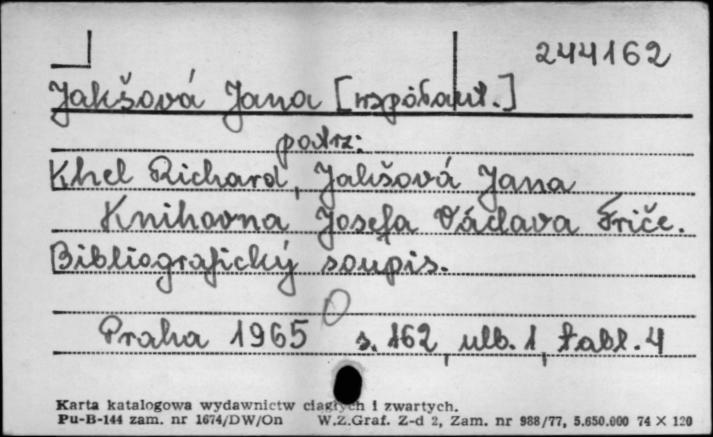 244162
Jakšová Jana [współaut.]
patrz:
Khel Richard, Jakšová Jana
Knihovna Josefa Václava Friče.
Bibliografický soupis.
Praha 1965 s. 162, ulb. 1, tabl. 4
Karta katalogowa wydawnictw ciągłych i zwartych.
Pu-B-144 zam. nr 1674/DW/On W.Z.Graf. Z-d 2, Zam. nr 988/77, 5.650.000 74 X 120